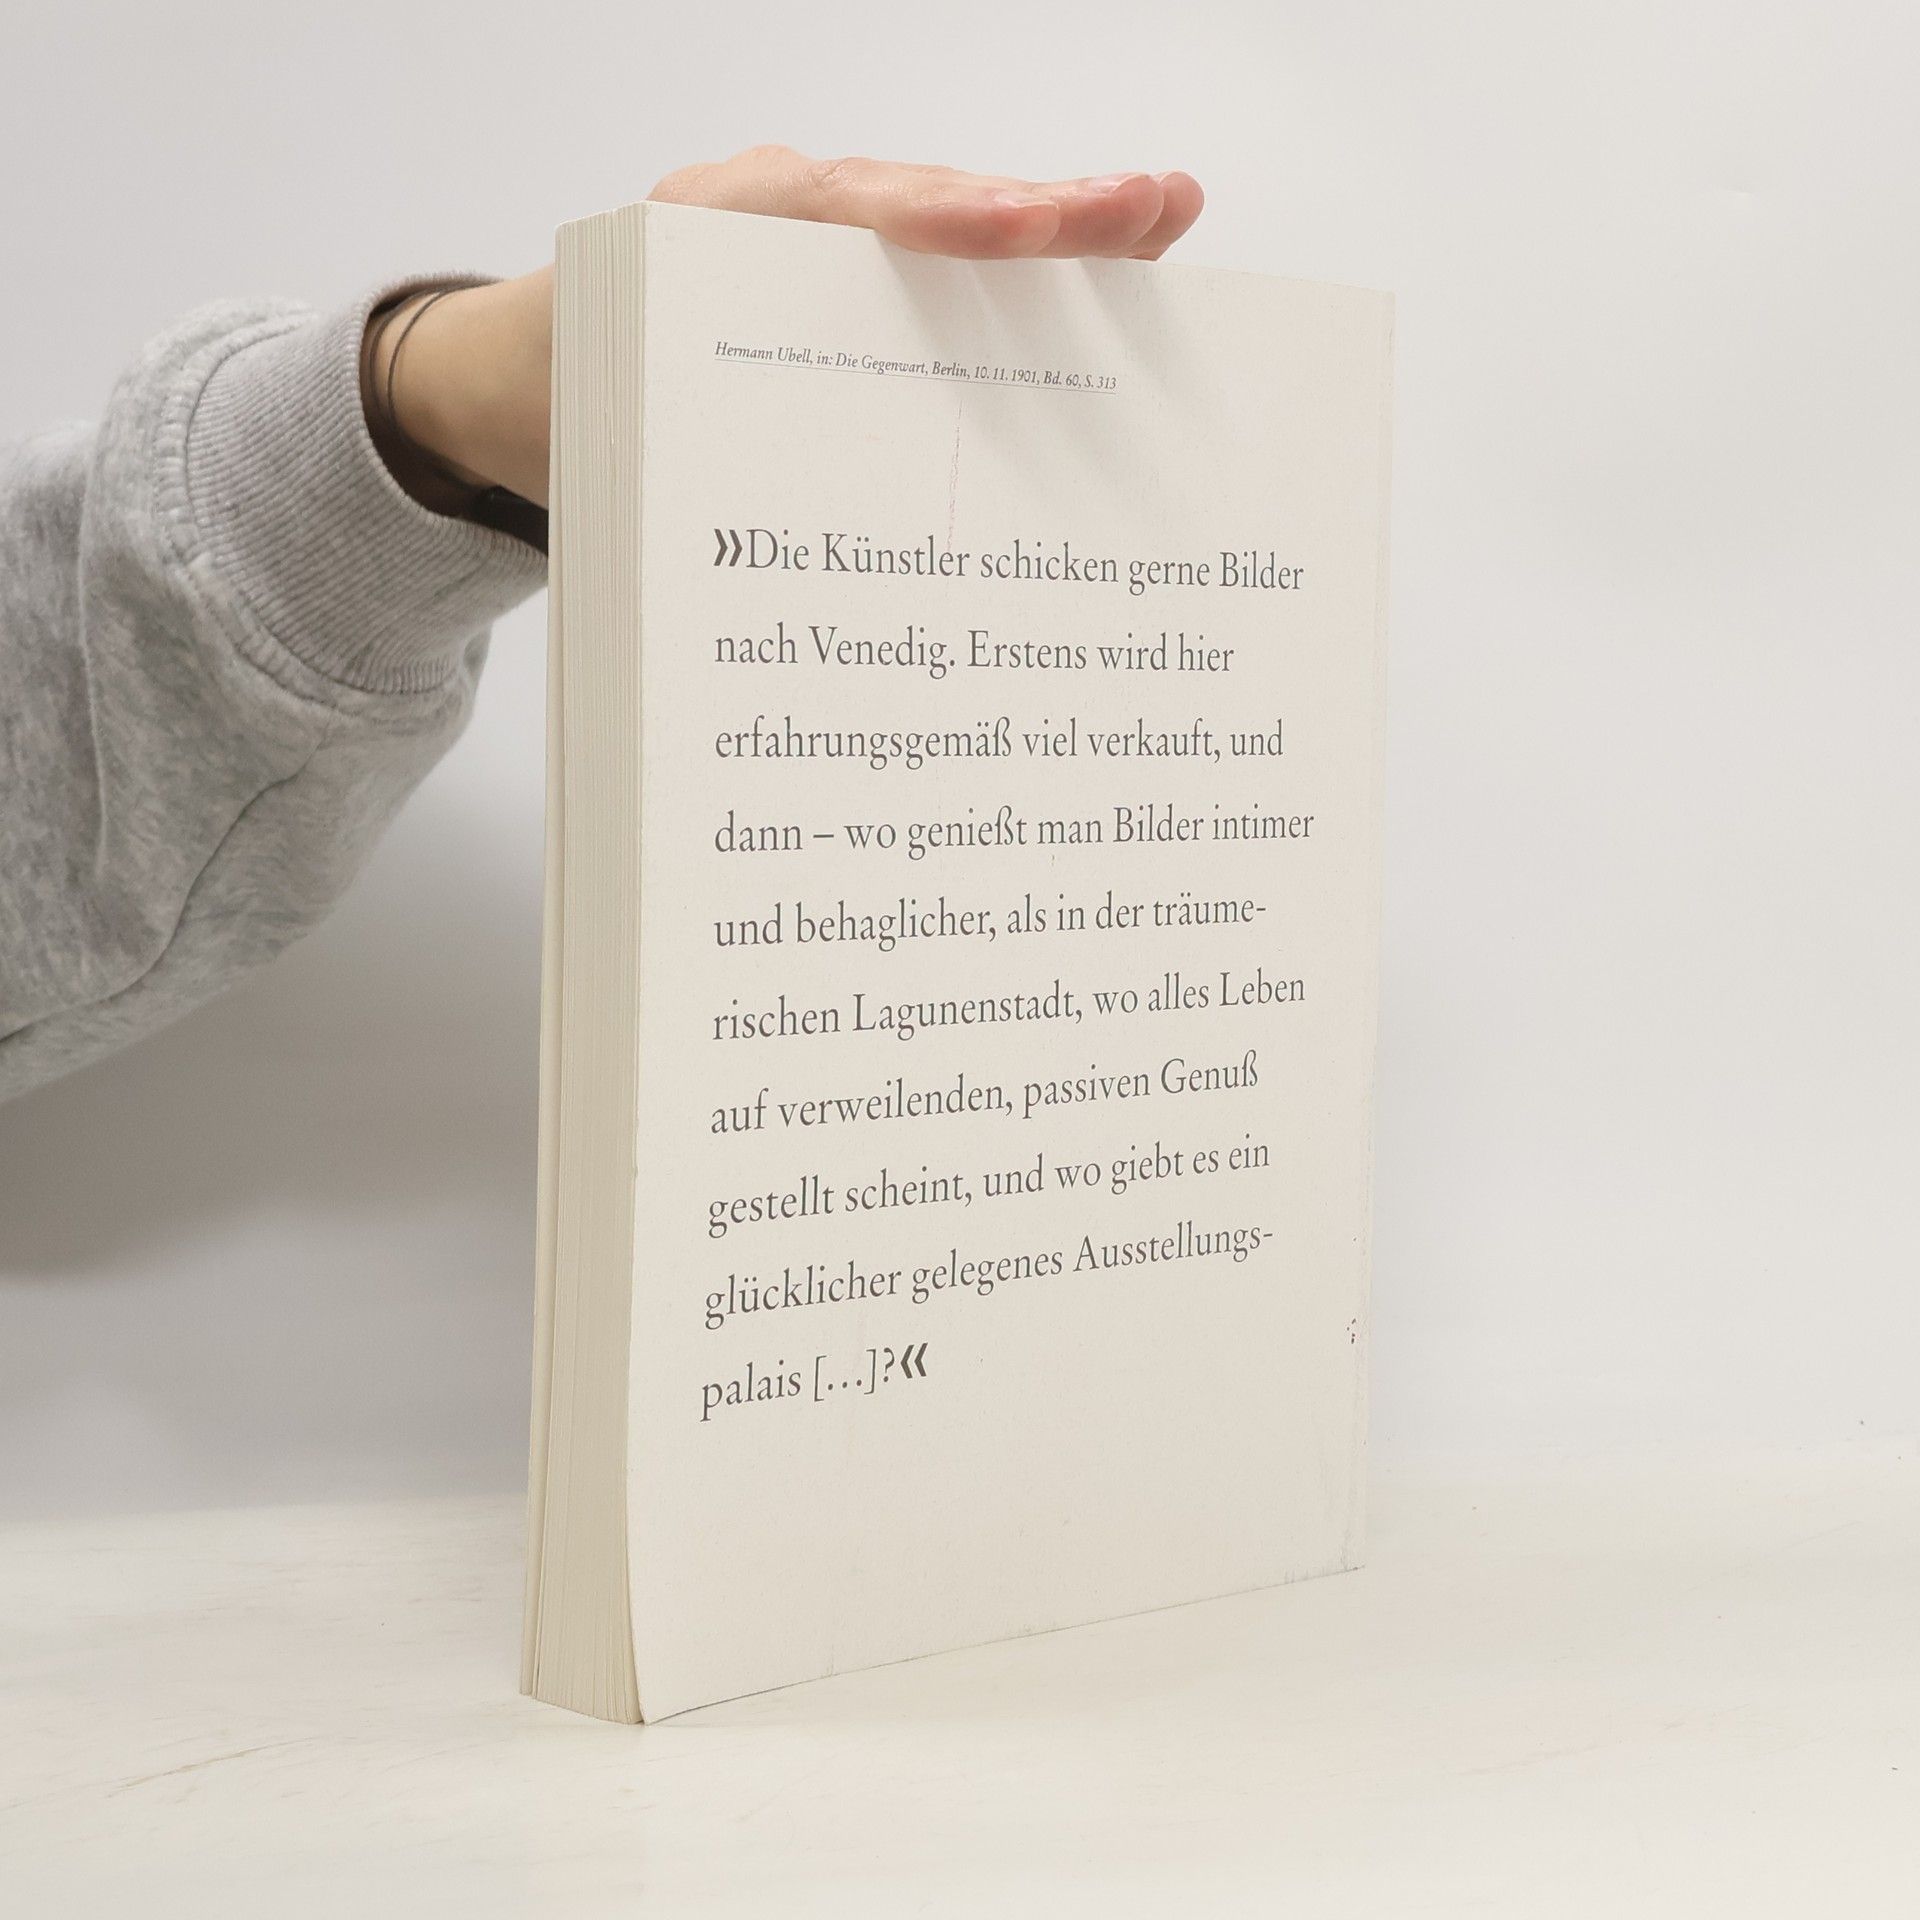 Hermann Ubell, in: Die Gegenwart, Berlin, 10. 11. 1901, Bd. 60, S. 313
»Die Künstler schicken gerne Bilder
nach Venedig. Erstens wird hier
erfahrungsgemäß viel verkauft, und
dann – wo genießt man Bilder intimer
und behaglicher, als in der träume-
rischen Lagunenstadt, wo alles Leben
auf verweilenden, passiven Genuß
gestellt scheint, und wo giebt es ein
glücklicher gelegenes Ausstellungs-
palais [...]?«